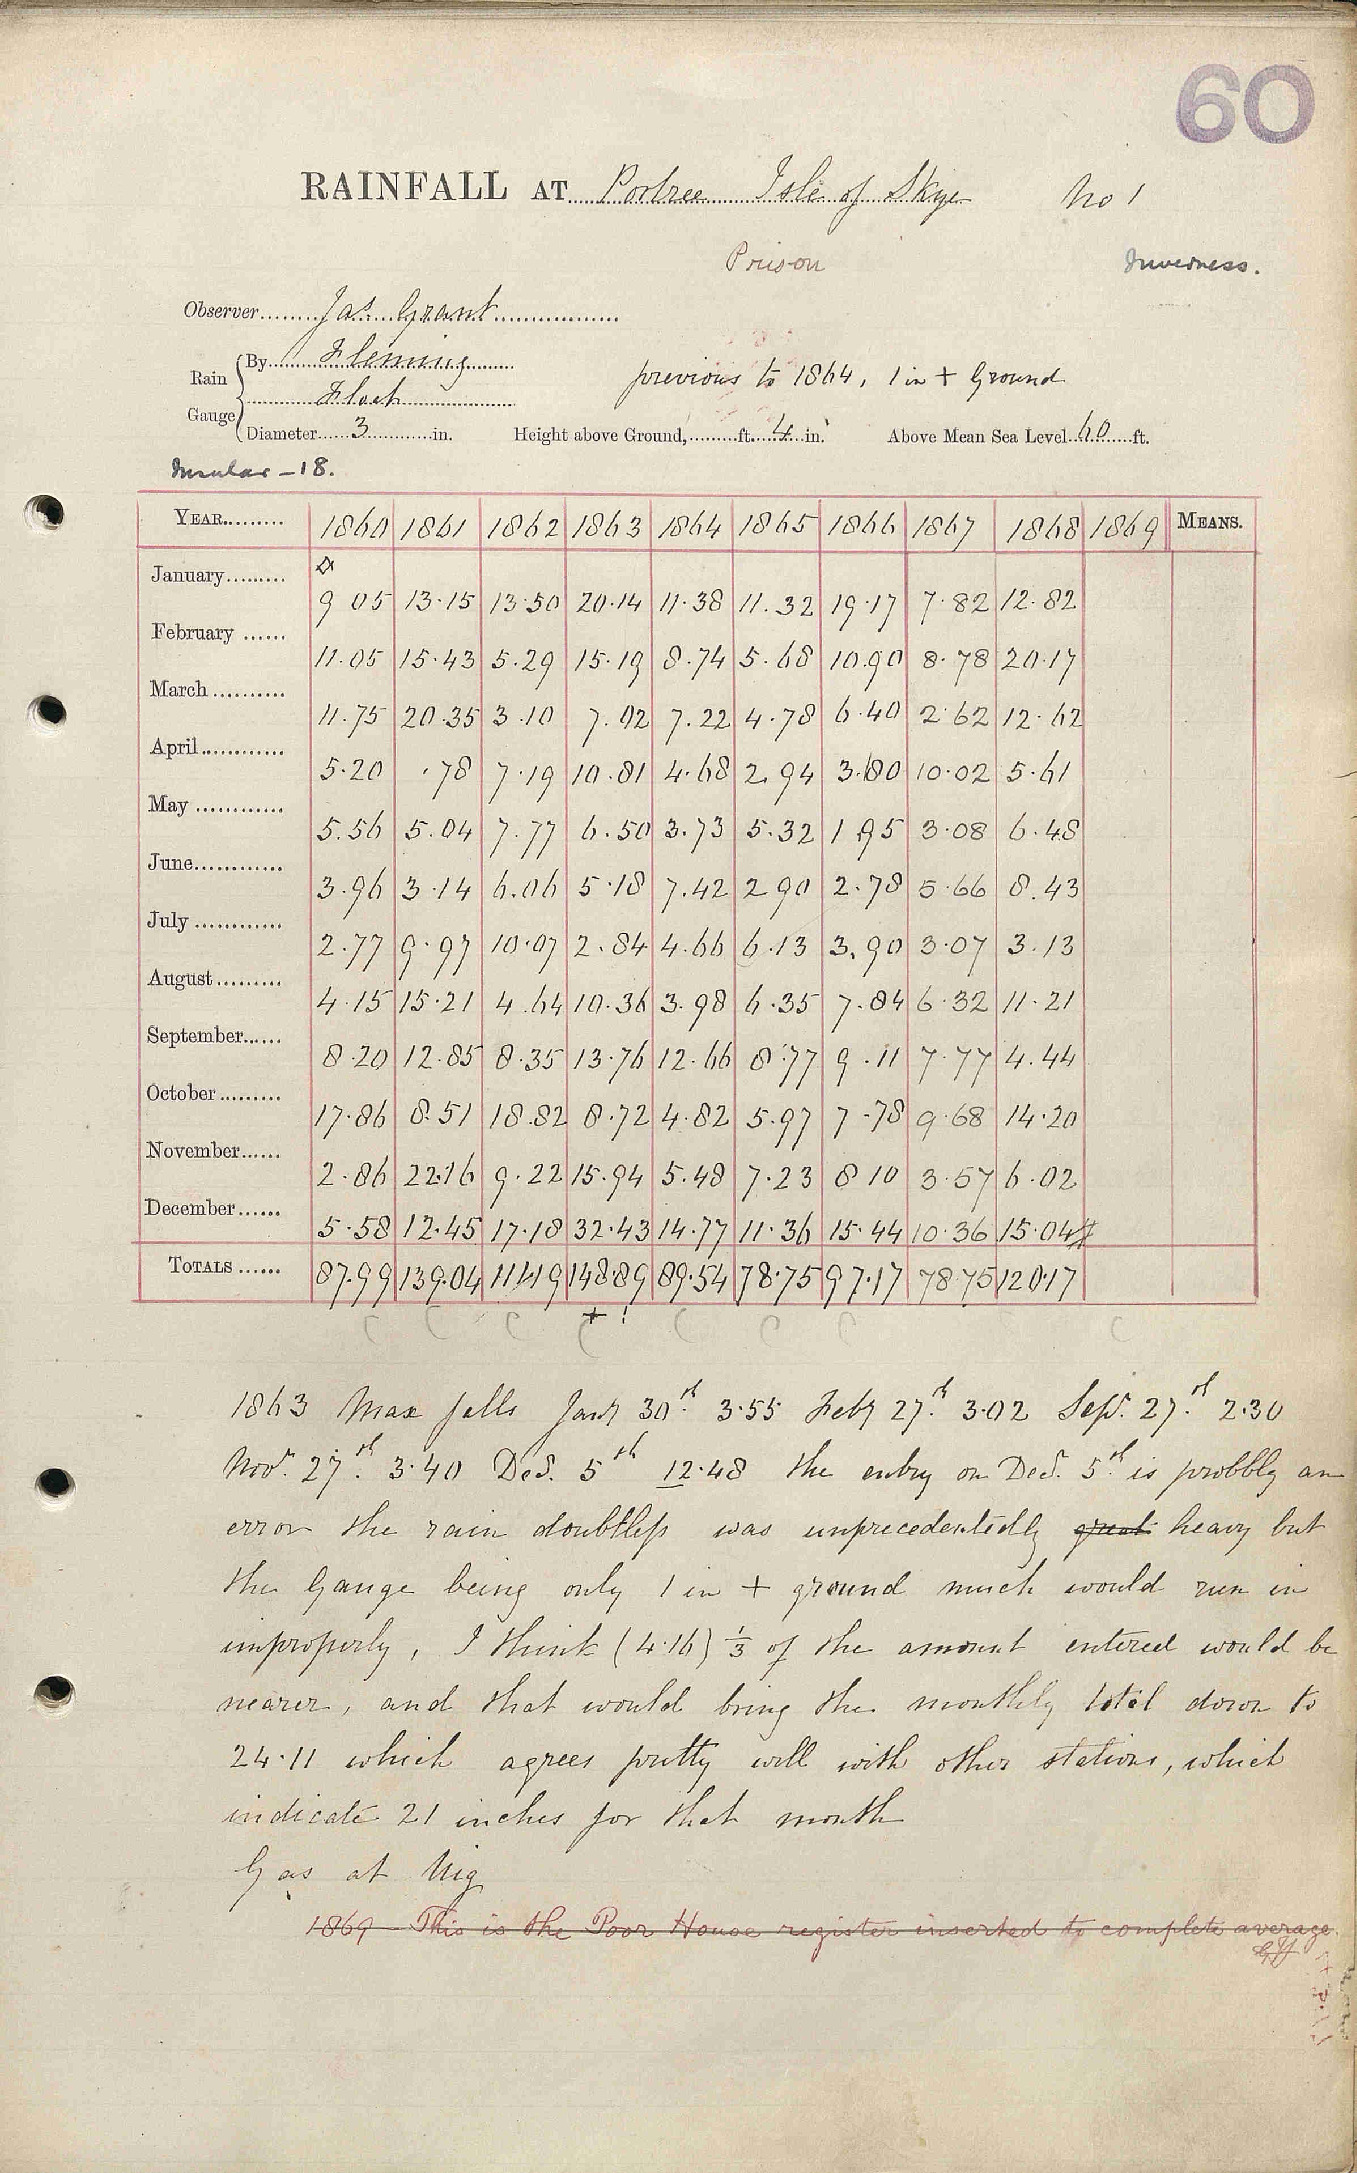 60
RAINFALL AT Portree Isle of Skye No 1
Prison Inverness.
Observer Jas Grant
Rain Gauge By Fleming
Float previous to 1864, 1 in + Ground
Diameter 3 in. Height above Ground, ft. 4 in. Above Mean Sea Level 60 ft.
Insular - 18.
YEAR 1860 1861 1862 1863 1864 1865 1866 1867 1868 1869 MEANS.
January 9 05 13.15 13.50 20.14 11.38 11.32 19.17 7.82 12.82
February 11.05 15.43 5.29 15.19 8.74 5.68 10.90 8.78 20.17
March 11.75 20.35 3.10 7.02 7.22 4.78 6.40 2.62 12.62
April 5.20 .78 7.19 10.81 4.68 2.94 3.80 10.02 5.61
May 5.56 5.04 7.77 6.50 3.73 5.32 1 95 3.08 6.48
June 3.96 3.14 6.06 5.18 7.42 2 90 2.78 5.66 8.43
July 2.77 9.97 10.07 2.84 4.66 6.13 3.90 3.07 3.13
August 4.15 15.21 4.64 10.36 3.98 6.35 7.84 6.32 11.21
September 8.20 12.85 8.35 13.76 12.66 8.77 9.11 7.77 4.44
October 17.86 8.51 18.82 8.72 4.82 5.97 7.78 9.68 14.20
November 2.86 22.16 9.22 15.94 5.48 7.23 8 10 3.57 6.02
December 5.58 12.45 17.18 32.43 14.77 11.36 15.44 10.36 15.04
TOTALS 87.99 139.04 111.19 148.89 89.54 78.75 97.17 78.75 120.17
+ !
1863 Max falls Jany 30th 3.55 Feby 27th 3.02 Sep. 27th 2.30
Nov. 27th 3.40 Dec. 5th 12.48 the entry on Dec. 5th is probbly an
error the rain doubtless was unprecedentedly great heavy but
the Gauge being only 1 in + ground much would run in
improperly, I think (4.16) 1/3 of the amount entered would be
nearer, and that would bring the monthly total down to
24.11 which agrees pretty well with other stations, which
indicate 21 inches for that month
Gas at Uig
1869 This is the Poor House register inserted to complete average.